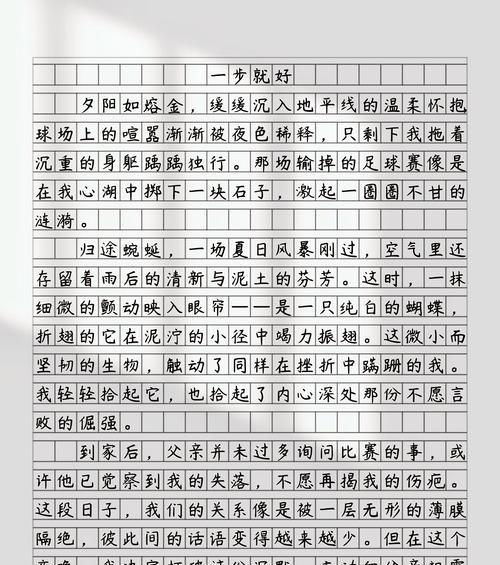 一步就好
夕阳如熔金，缓缓沉入地平线的温柔怀抱
球场上的喧嚣渐渐被夜色稀释，只剩下我拖着
沉重的身躯踽踽独行。那场输掉的足球赛像是
在我心湖中掷下一块石子，激起一圈圈不甘的
涟漪。
归途蜿蜒，一场夏日风暴刚过，空气里还
存留着雨后的清新与泥土的芬芳。这时，一抹
细微的颤动映入眼帘——是一只纯白的蝴蝶，
折翅的它在泥泞的小径中竭力振翅。这微小而
坚韧的生物，触动了同样在挫折中蹒跚的我。
我轻轻拾起它，也拾起了内心深处那份不愿言
败的倔强。
到家后，父亲并未过多询问比赛的事，或
许他已觉察到我的失落，不愿再揭我的伤疤。
这段日子，我们的关系像是被一层无形的薄膜
隔绝，彼此间的话语变得越来越少。但在这个